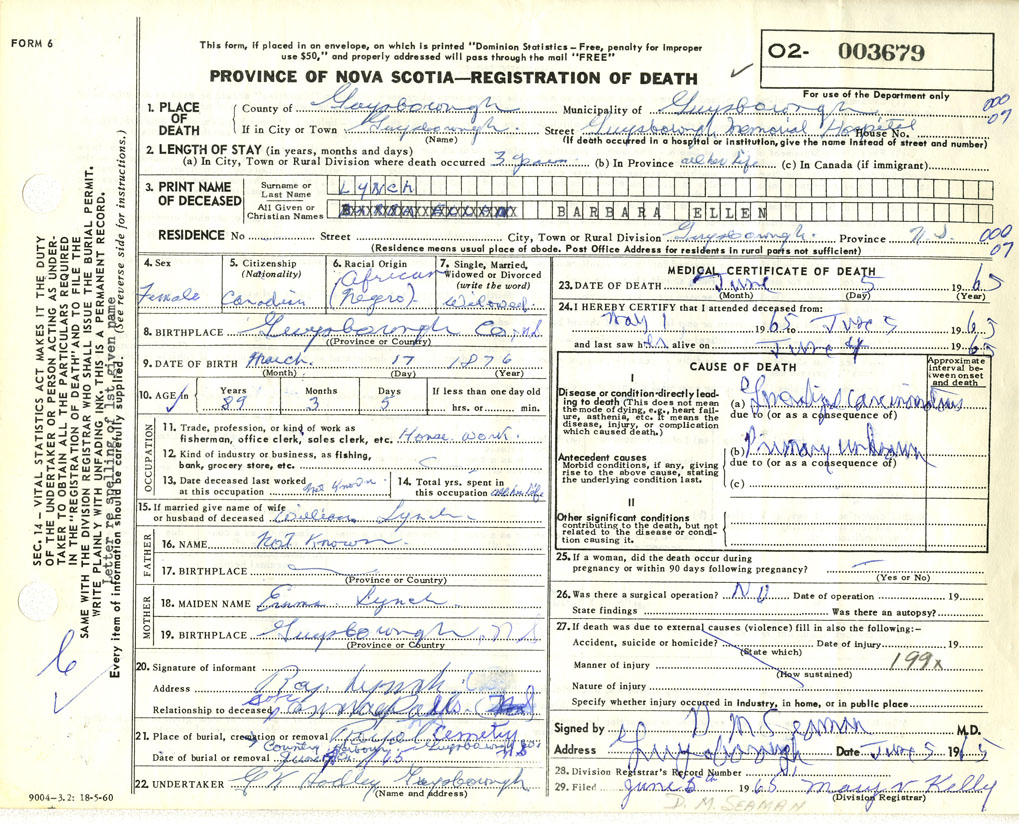 FORM 6
This form, if placed in an envelope, on which is printed "Dominion Statistics – Free, penalty for improper
use $50," and properly addressed will pass through the mail "FREE"
PROVINCE OF NOVA SCOTIA—REGISTRATION OF DEATH
O2- 003679
For use of the Department only
1. PLACE OF DEATH
County of Guysborough Municipality of Guysborough
000
07
If in City or Town Guysborough. Street Guysborough Memorial Hospital House No.
(Name) (If death occurred in a hospital or institution, give the name instead of street and number)
2. LENGTH OF STAY (in years, months and days)
(a) In City, Town or Rural Division where death occurred 3 years (b) In Province all her life (c) In Canada (if immigrant)
3. PRINT NAME OF DECEASED
Surname or Last Name LYNCH
All Given or Christian Names BARBARA ELLEN
RESIDENCE No Street City, Town or Rural Division Guysborough. Province N.S.
000
07
(Residence means usual place of abode. Post Office Address for residents in rural parts not sufficient)
4. Sex Female
5. Citizenship (Nationality) Canadian
6. Racial Origin African (Negro)
7. Single, Married, Widowed or Divorced (write the word) Widowed.
8. BIRTHPLACE Guysborough Co, N.S.
(Province or County)
9. DATE OF BIRTH March 17 1876
(Month) (Day) (Year)
10. AGE in Years 89 Months 3 Days 5 If less than one day old hrs. or min.
OCCUPATION
11. Trade, profession, or kind of work as
fisherman, office clerk, sales clerk, etc. House work.
12. Kind of industry or business, as fishing,
bank, grocery store, etc.
13. Date deceased last worked
at this occupation Not Known
14. Total yrs. spent in
this occupation all her life
15. If married give name of wife
or husband of deceased William Lynch
FATHER
16. NAME Not Known.
17. BIRTHPLACE
(Province or Country)
MOTHER
18. MAIDEN NAME Emma Lynch
19. BIRTHPLACE Guysborough, N S
(Province or Country)
20. Signature of informant Ray Lynch
Address
Relationship to deceased
21. Place of burial, cremation or removal Cemetery
Guysborough
Date of burial or removal 65
22. UNDERTAKER Guysborough
(Name and address)
9004–3.2: 18-5-60
MEDICAL CERTIFICATE OF DEATH
23. DATE OF DEATH June 5 1965
(Month) (Day) (Year)
24. I HEREBY CERTIFY that I attended deceased from:
May 1 1965 to June 5 1965
and last saw h alive on June 1965
CAUSE OF DEATH
Approximate interval between onset and death
I
Disease or condition directly leading to death (This does not mean the mode of dying, e.g., heart failure, asthenia, etc. It means the disease, injury, or complication which caused death.)
(a)
due to (or as a consequence of)
Antecedent causes
Morbid conditions, if any, giving rise to the above cause, stating the underlying condition last.
(b) Primary unknown
due to (or as a consequence of)
(c)
II
Other significant conditions
contributing to the death, but not related to the disease or condition causing it.
25. If a woman, did the death occur during
pregnancy or within 90 days following pregnancy?
(Yes or No)
26. Was there a surgical operation? NO Date of operation 19
State findings Was there an autopsy?
27. If death was due to external causes (violence) fill in also the following:–
Accident, suicide or homicide? Date of injury 19
(State which)
Manner of injury 199x
(How sustained)
Nature of injury
Specify whether injury occurred in industry, in home, or in public place
Signed by D. M. Seaman M.D.
Address Guysborough Date June 5 1965
28. Division Registrar's Record Number
29. Filed June 5th 1965 Mary V Kelly
(Division Registrar)
D. M. SEAMAN
SEC. 14 – VITAL STATISTICS ACT MAKES IT THE DUTY
OF THE UNDERTAKER OR PERSON ACTING AS UNDER-
TAKER TO OBTAIN ALL THE PARTICULARS REQUIRED
IN THE "REGISTRATION OF DEATH" AND TO FILE THE
SAME WITH THE DIVISION REGISTRAR WHO SHALL ISSUE THE BURIAL PERMIT.
WRITE PLAINLY WITH UNFADING INK. THIS IS A PERMANENT RECORD.
Letter re spelling of 1st given name
Every item of information should be carefully supplied. (See reverse side for instructions.)